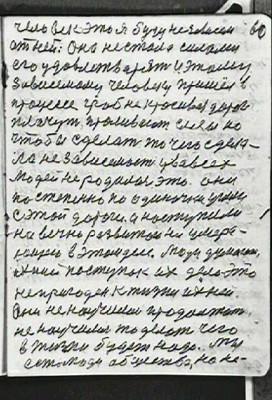 человек это я буду не зависим 60
от ней: Она не стала
его удовлетворят и этому
зависимому человеку пришёл в
процессе гроб не красивая дорога
плачут, проливают слезы но
чтобы сделат то чего сдела-
ла не зависимост у всех
людей не родилос это. они
постепенно по одиночки ушли
с этой дороги, а наступили
на вечно развитой не
в этом деле. Люди думают,
поступок их дело это
не пригоден к жизни их ней.
Они не научились продолжат,
не научились то делат чего
в жизни будет надо. Мы
ест люди общества, но не-